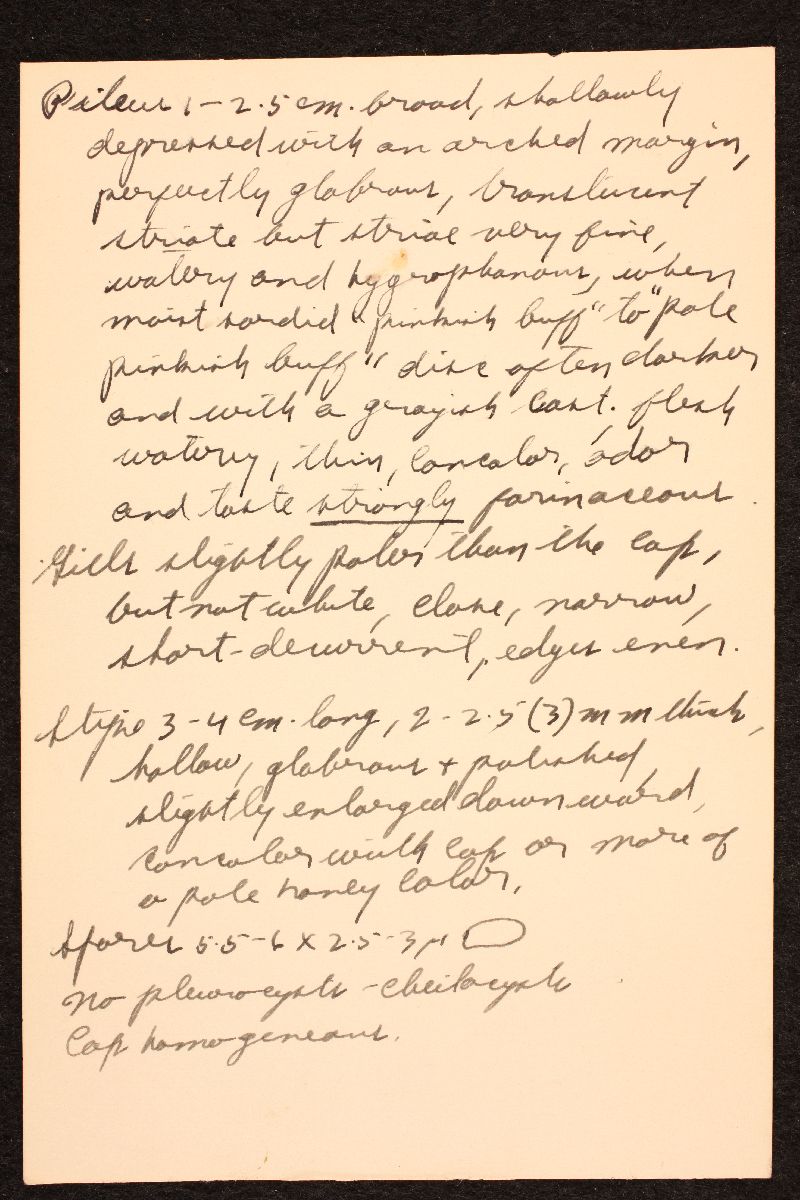 Pileus 1-2.5 cm. broad, shallowly
degressed with an arched margin,
perfectly glabrous, translucent
striate but striae very fine,
watery and hygrophanous, when
moist sordid "pinkish buff" to "pale
pinkish buff" disc often darker
and with a grayish cast; flesh
watery, thin, concolor, odor
and taste strongly farinaceous.
Gills slightly paler than the cap,
but not white, close, narrow,
short-decurrent, edges even.
Stipe 3-4 cm. long, 2-2.5(3) mm thick,
hollow, glabrous + polished
slightly enlarged downward,
concolor with cap or more of
a pale honey color.
Spores 5.5-6 x 2.5-3 μ
no pleurocysts - cheilocysts
Cap homogeneous.